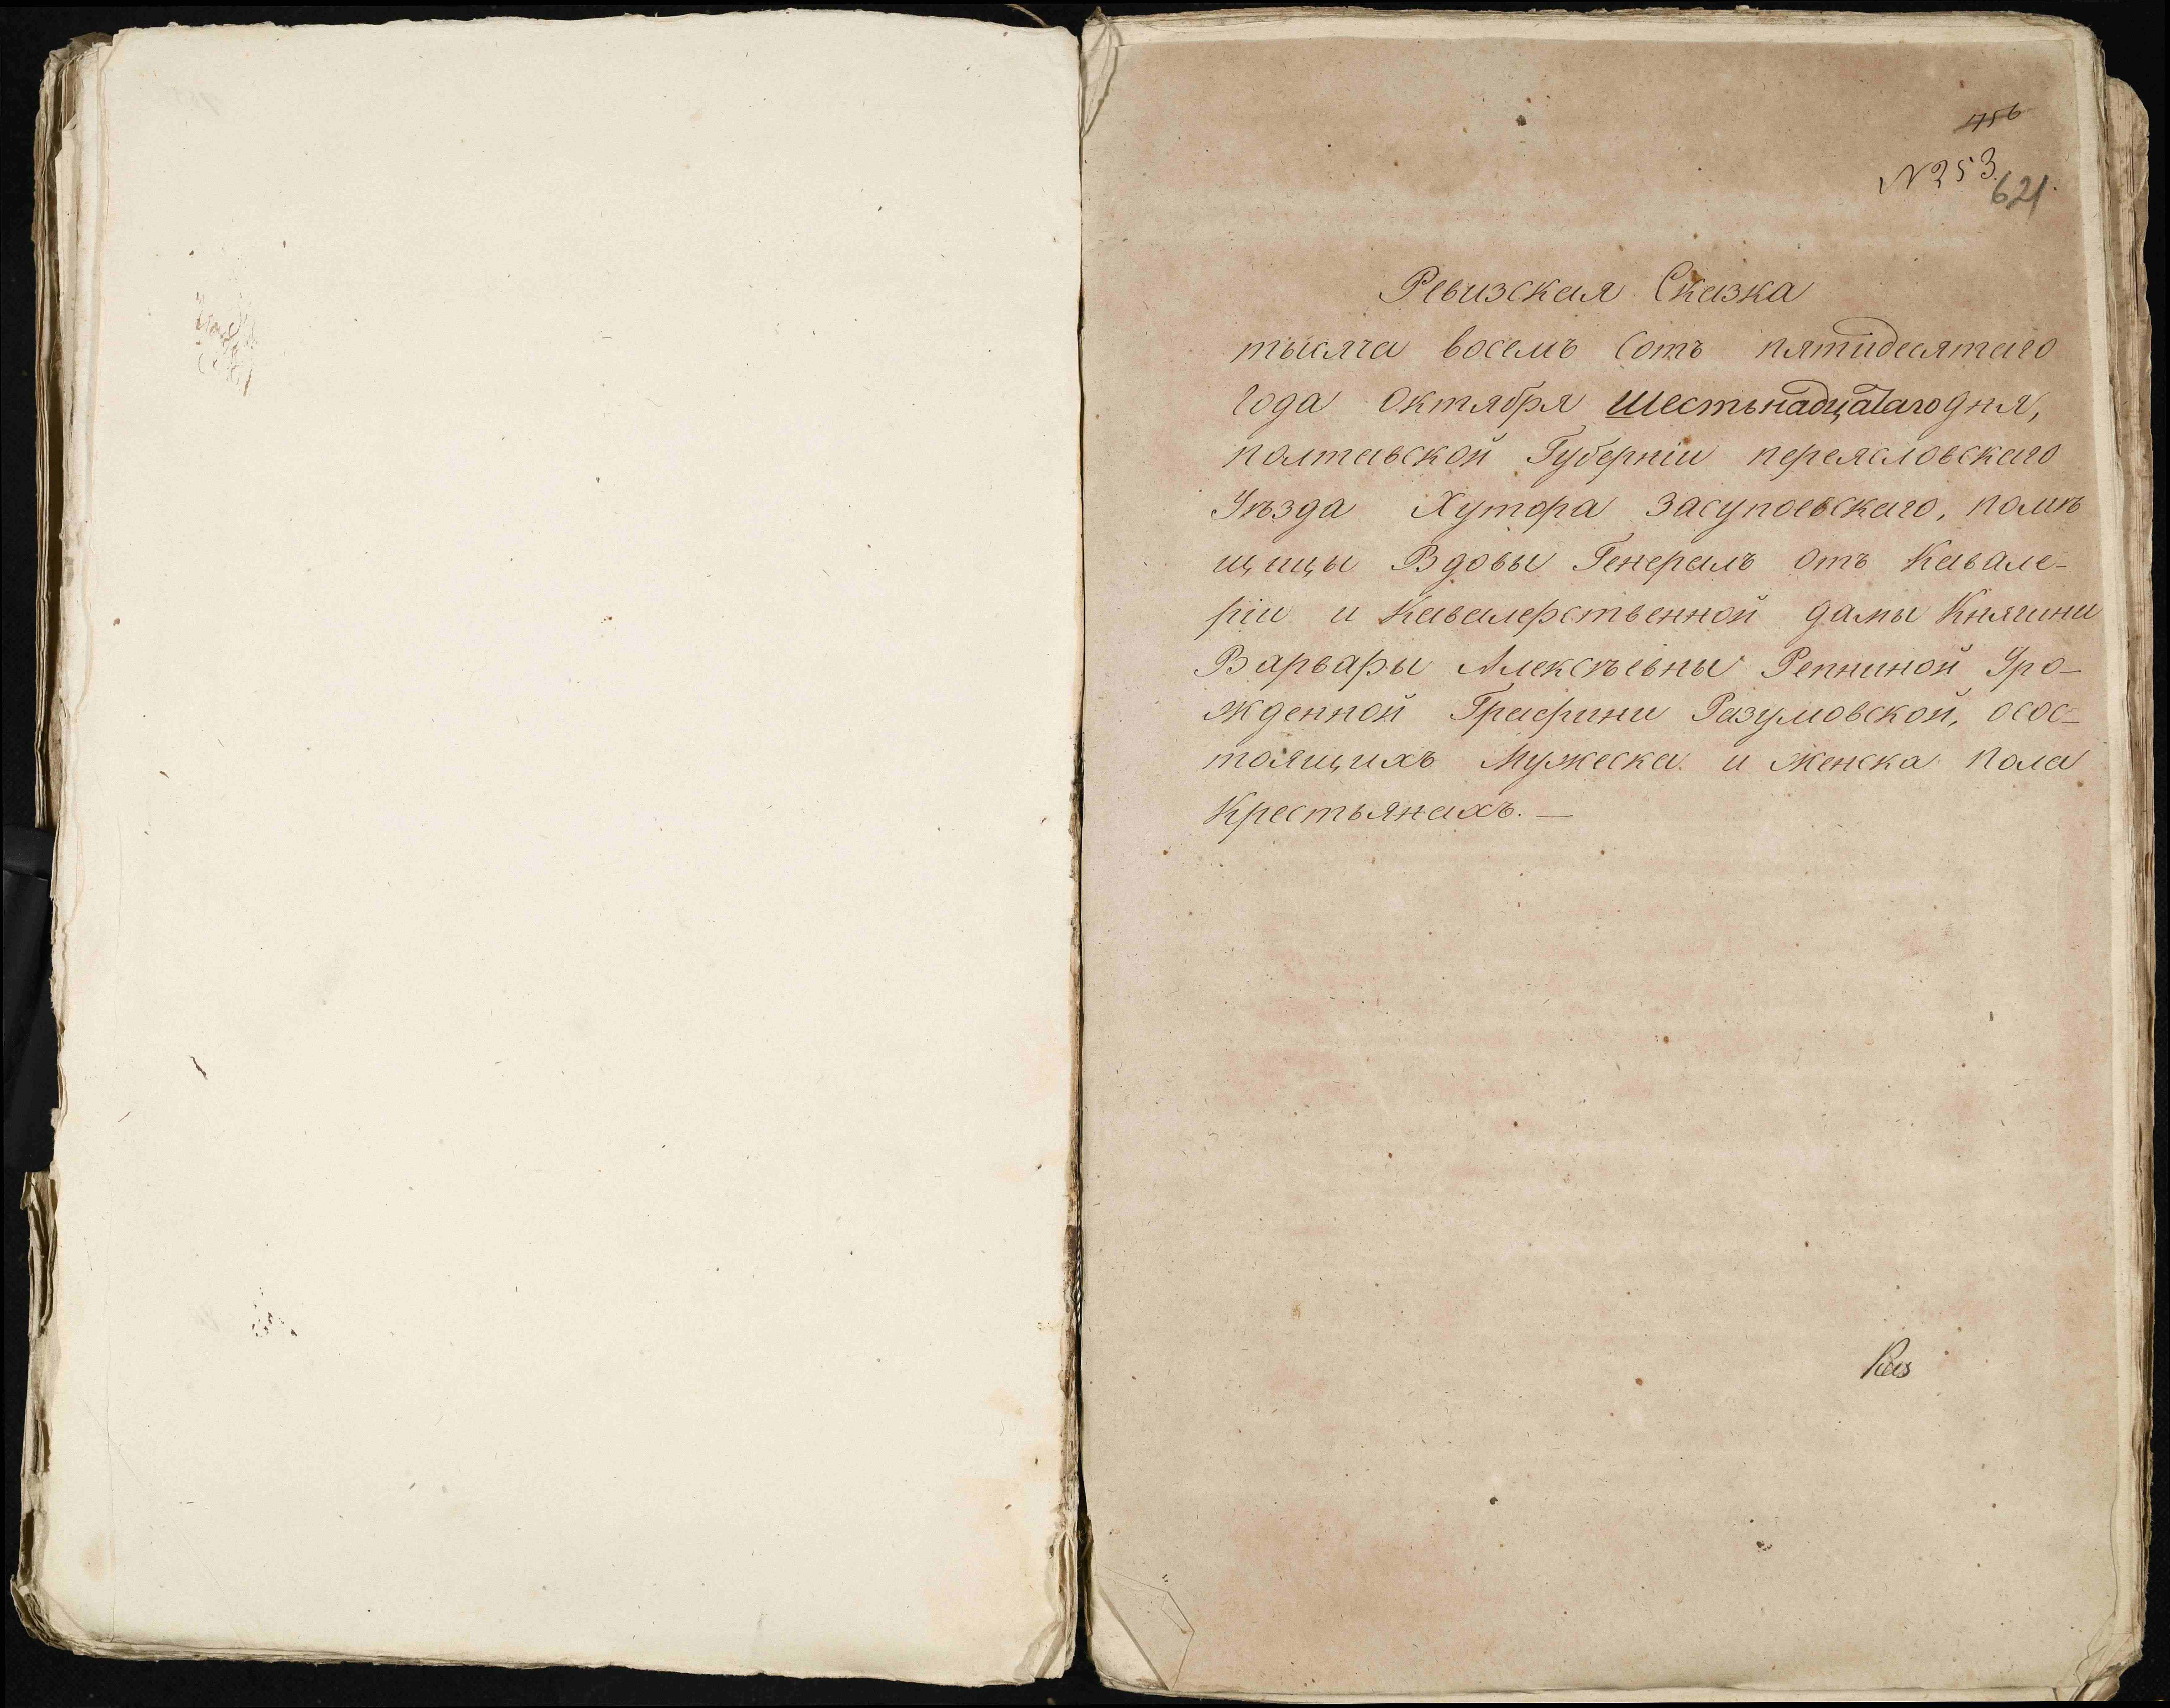 456
№253.
621.
Ревизская Сказка
тысяча восемь Сотъ пятидесятаго
Года Октября Шестьнадцатаго дня,
полтавской Губерніи переясловскаго
Уѣзда Хутора Засупоевскаго, помѣ
щицы Вдовы Генералъ Отъ Кавале-
ріи и Кавалерственной дамы Княгини
Варвары Алексѣевны Репниной Уро-
жденной Графини Разумовской, осос-
тоящихъ Мужеска и женска пола
Крестьянахъ. —